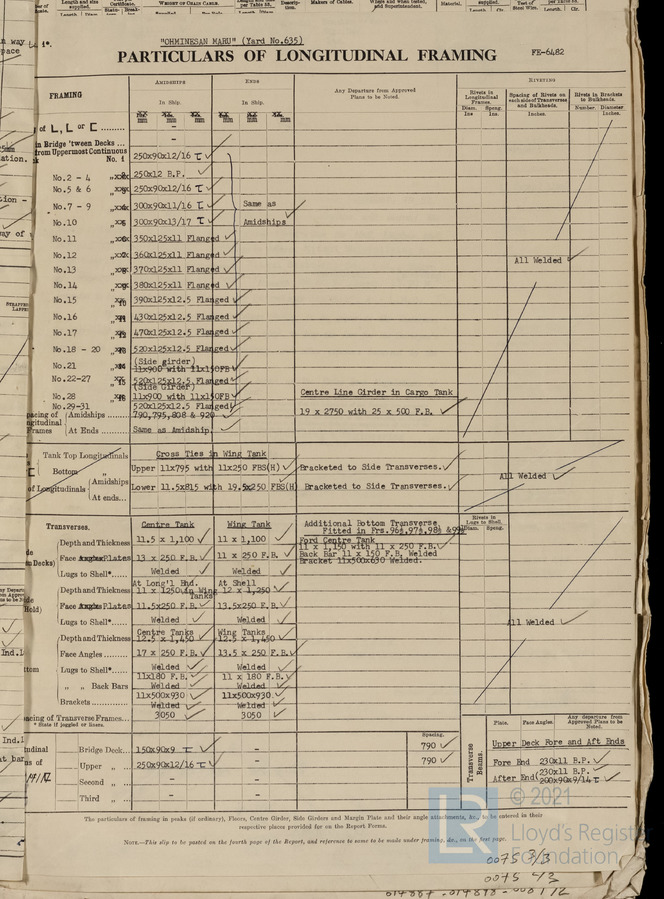 "OHMINESAN MARU" (Yard No.635)
PARTICULARS OF LONGITUDINAL FRAMING
FE-6482
FRAMING
AMIDSHIPS
ENDS
In Ship.
In Ship.
Any Departure from Approved
Plans to be Noted.
RIVETING
Rivets in
Longitudinal
Frames.
Diam. Spcng.
Ins Ins
Spacing of Rivets on
each side of Transverses
and Bulkheads.
Inches.
Rivets in Brackets
to Bulkheads.
Number. Diameter
Inches.
mm mm mm mm
of L, L or [ .........
in Bridge 'tween Decks ...
from Uppermost Continuous
No. 1 250x90x12/16
No.2 - 4 250x12 B.P.
No.5 & 6 250x90x12/16
No.7 - 9 300x90x11/16 Same as
No.10 300x90x13/17 Amidships
No.11 350x125x11 Flanged
No.12 360x125x11 Flanged All Welded
No.13 370x125x11 Flanged
No.14 380x125x11 Flanged
No.15 390x125x12.5 Flanged
No.16 430x125x12.5 Flanged
No.17 470x125x12.5 Flanged
No.18 - 20 520x125x12.5 Flanged
(Side girder)
No.21 11x900 with 11x150FB
No.22-27 520x125x12.5 Flanged
(Side Girder)
No.28 11x900 with 11x150FB Centre Line Girder in Cargo Tank
No.29-31 520x125x12.5 Flanged 19 x 2750 with 25 x 500 F.B.
Amidships ........ 790,795,808 & 920
At Ends ... Same as Amidship
Tank Top Longitudinals Cross Ties in Wing Tank
Bottom " Amidships Upper 11x795 with 11x250 FBS(H) Bracketed to Side Transverses. All Welded
of Longitudinals At ends... Lower 11.5x815 with 19.5x250 FBS(H) Bracketed to Side Transverses.
Transverses. Centre Tank Wing Tank Additional Bottom Transverse
Fitted in Frs.96½,97½,98½ &
Rivets in
Lugs to Shell.
Diam. Spcng.
Depth and Thickness 11.5 x 1,100 11 x 1,100
Centre Tank
11 x 1,150 with 11 x 250 F.B.
Face Plates 13 x 250 F.B. 11 x 250 F.B. Back Bar 11 x 150 F.B. Welded
Bracket 11x500x630 Welded.
Lugs to Shell*..... Welded Welded
At Long'l Bhd. At Shell
Depth and Thickness 11 x 1250 in Wing Tanks 12 x 1,250
Face Plates 11.5x250 F.B. 13.5x250 F.B.
Lugs to Shell*..... Welded Welded All Welded
Centre Tanks Wing Tanks
Depth and Thickness 12.5 x 1,450 12.5 x 1,450
Face Angles ... 17 x 250 F.B. 13.5 x 250 F.B.
Lugs to Shell*..... Welded Welded
11x180 F.B. 11 x 180 F.B.
" " Back Bars Welded Welded
11x500x930 11x500x930
Brackets........ Welded Welded
Spacing of Transverse Frames... 3050 3050
* State if joggled or liners.
Spacing.
Bridge Deck... 150x90x9 - 790
Upper " ... 250x90x12/16 - 790
Second " ... - -
Third " ... - -
Transverse
Beams.
Plate. Face Angles. Any departure from
Approved Plans to be
Noted.
Upper Deck Fore and Aft Ends
Fore End 230x11 B.P.
After End (230x11 B.P.
200x90x9/14
The particulars of framing in peaks (if ordinary), Floors, Centre Girder, Side Girders and Margin Plate and their angle attachments, &c., to be entered in their
respective places provided for on the Report Forms.
NOTE—This slip to be posted on the fourth page of the Report, and reference to same to be made under framing, &c., on the first page.
LR
© 2021
Lloyd's Register
Foundation
0075 3/3
0075 4/3